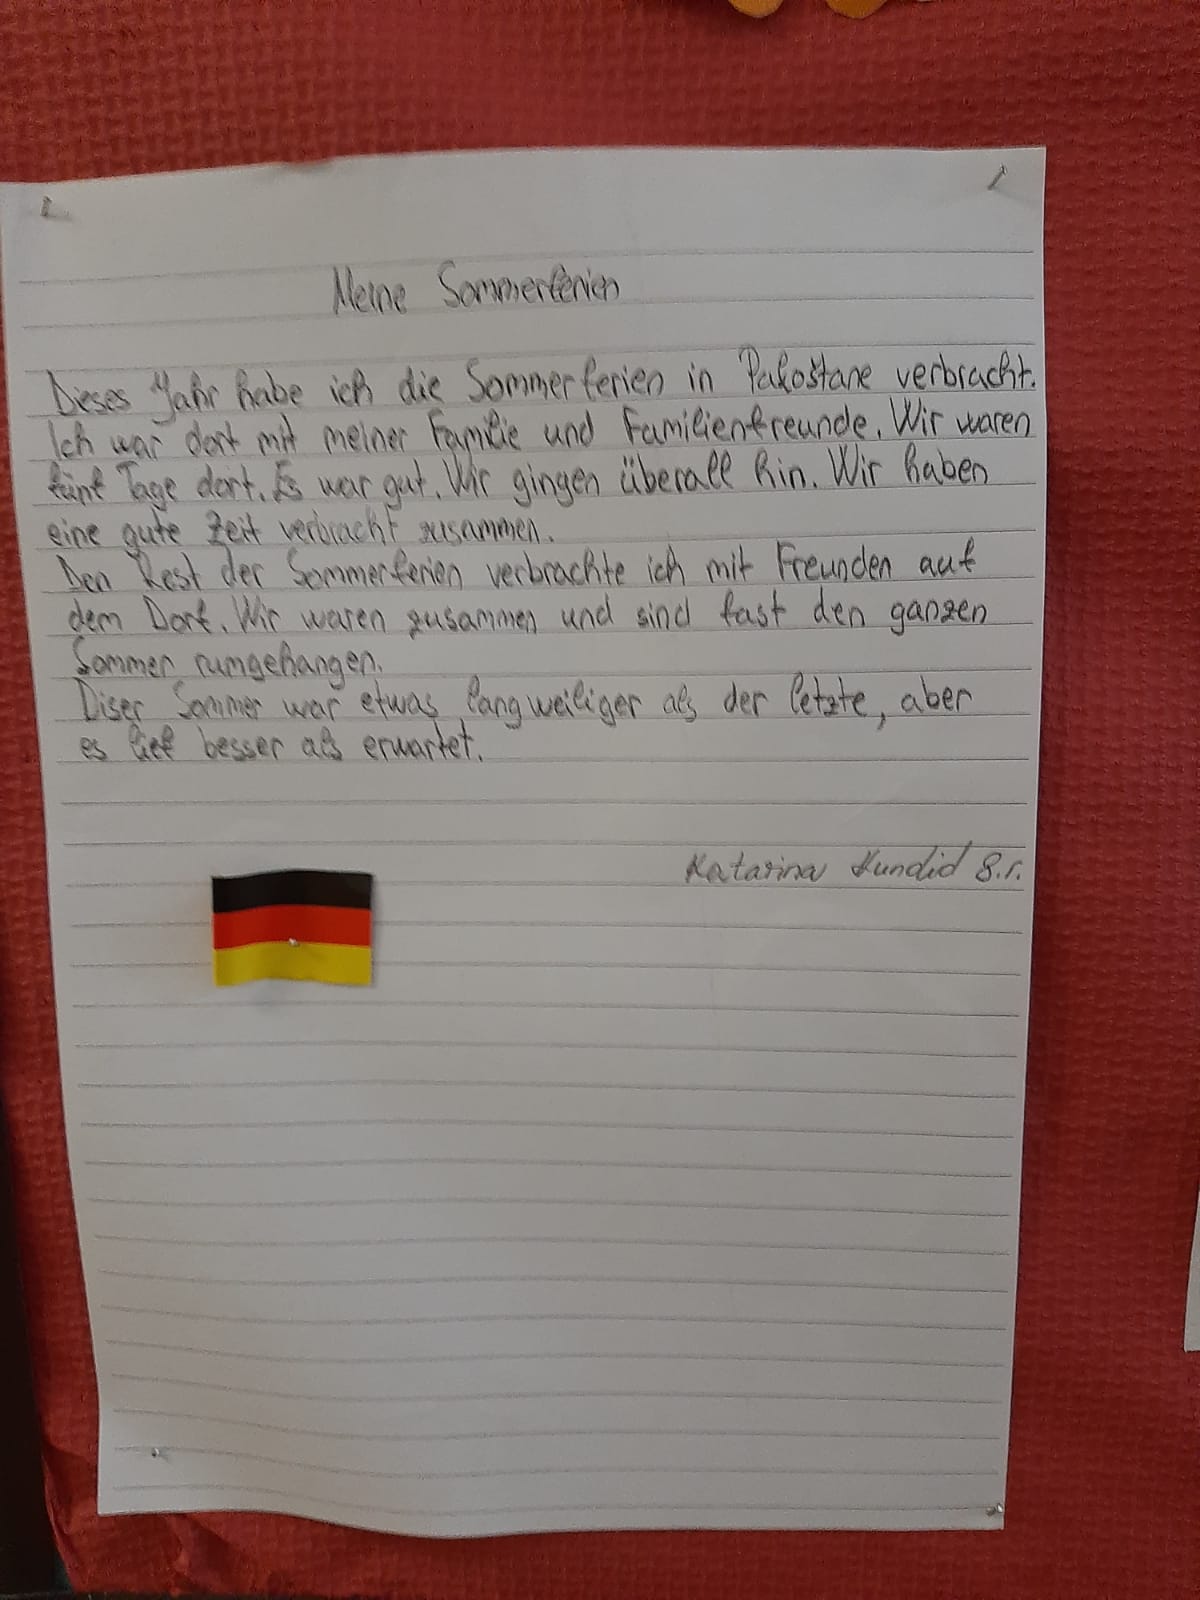 Meine Sommerferien
Dieses Jahr habe ich die Sommerferien in Pakoštane verbracht.
Ich war dort mit meiner Familie und Familienfreunde. Wir waren
fünf Tage dort. Es war gut. Wir gingen überall hin. Wir haben
eine gute Zeit verbracht zusammen.
Den Rest der Sommerferien verbrachte ich mit Freunden auf
dem Dorf. Wir waren zusammen und sind fast den ganzen
Sommer rumgehangen.
Diser Sommer war etwas langweiliger als der letzte, aber
es lief besser als erwartet.
Katarina Kundid 8.r.